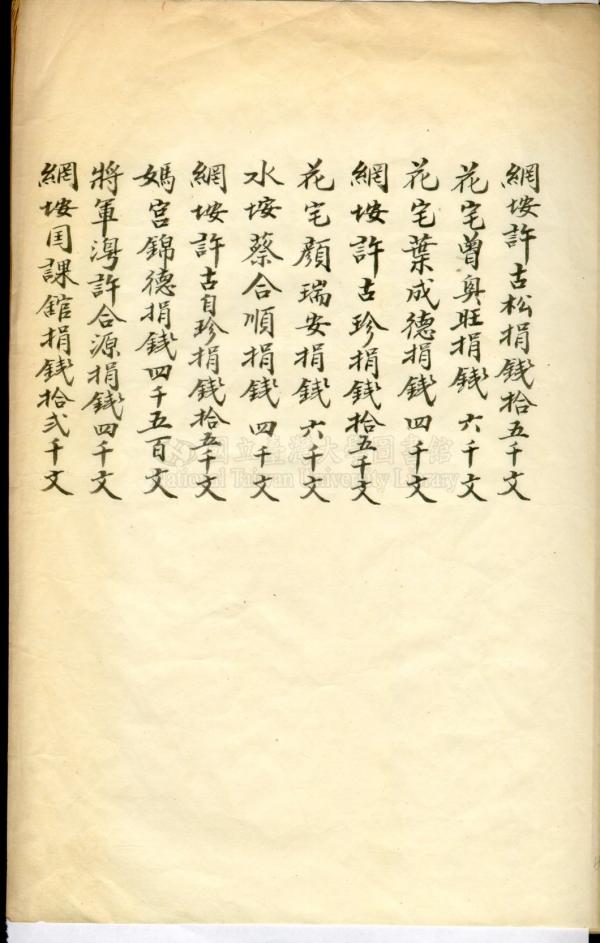 網垵許古松捐錢拾五千文
花宅曾奥旺捐錢六千文
花宅葉成德捐錢四千文
網垵許古珍捐錢拾五千文
花宅顏瑞安捐錢六千文
水垵蔡合順捐錢四千文
網垵許古自珍捐錢拾五千文
媽宮錦德捐錢四千五百文
將軍澚許合源捐錢四千文
網垵囯課館捐錢拾弍千文
國立臺灣大學圖書館
National Taiwan University Library